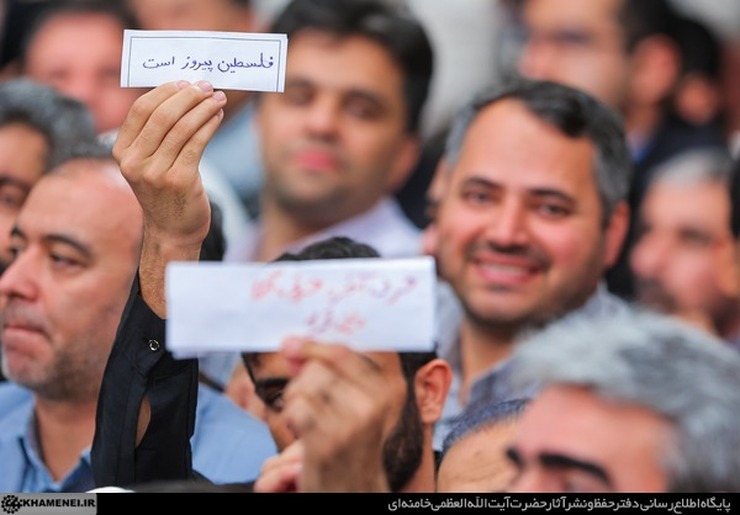 فلسطین پیروز است
KHAMENEI.IR
پایگاه اطلاع رسانی دفتر حفظ و نشر آثار حضرت آیت الله العظمی خامنه‌ای